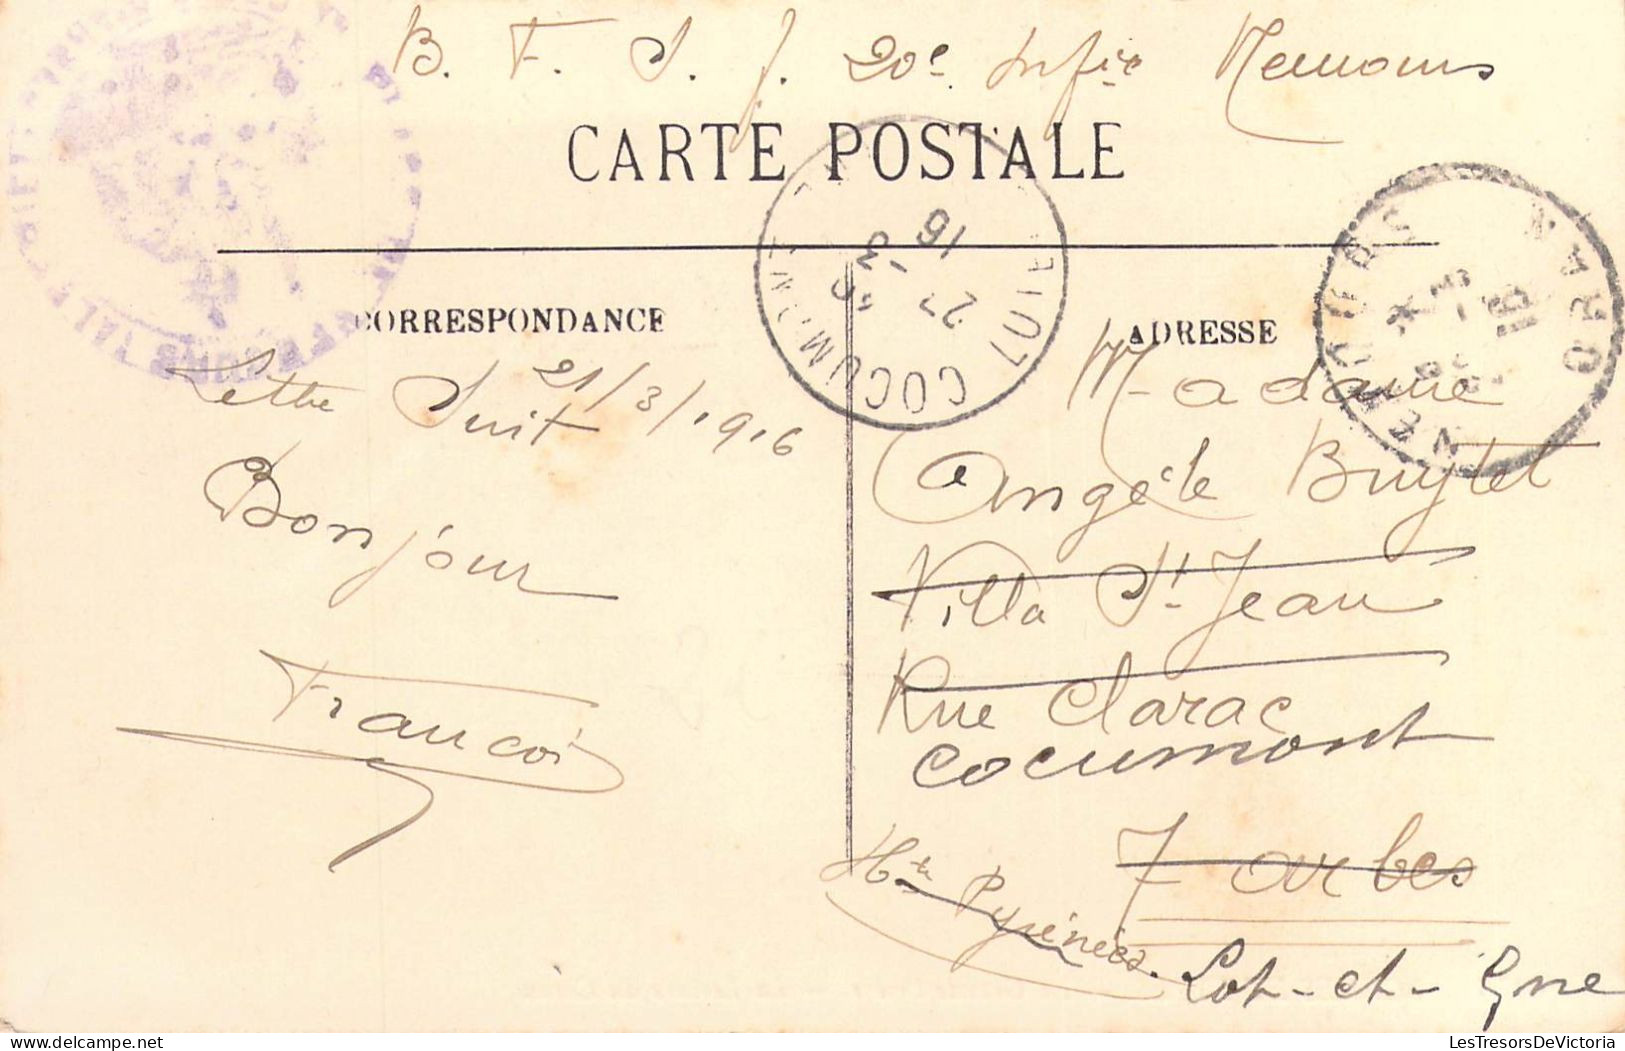 B. F. S. J. 20e Infie Nemours
CARTE POSTALE
CORRESPONDANCE
ADRESSE
COCUMONT
27 -3
16
NEMOURS
ORAN
Lettre Suit 21/3/1916
Bonjour
Francois
Madame
Angèle Buytet
Villa St. Jean
Rue Clarac
Cocumont
Tarbes
Htes Pyrénées.
Lot-et-Gne
LesTresorsDeVictoria